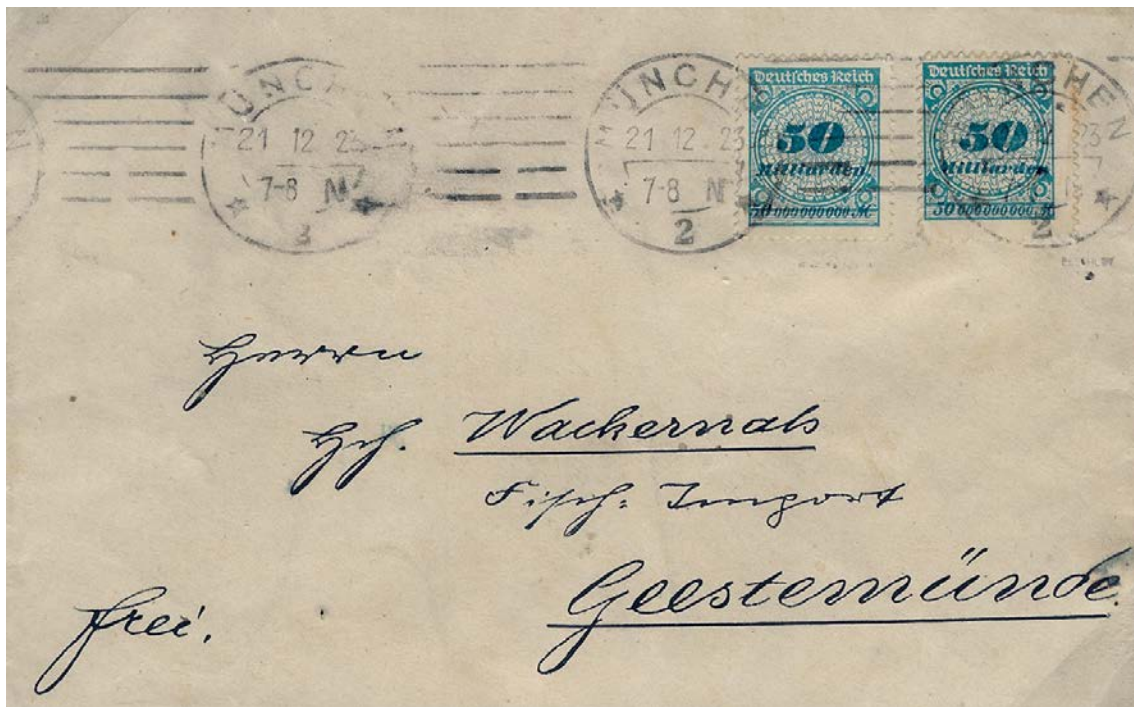 MÜNCHEN
21 12 23
7-8 N
2
MÜNCHEN
21 12 23
7-8 N
2
Deutsches Reich
50
Milliarden
50000000000 M
Deutsches Reich
50
Milliarden
50000000000 M
Herrn
Hch. Wackernals
Fisch-Import
Geestemünde
frei.